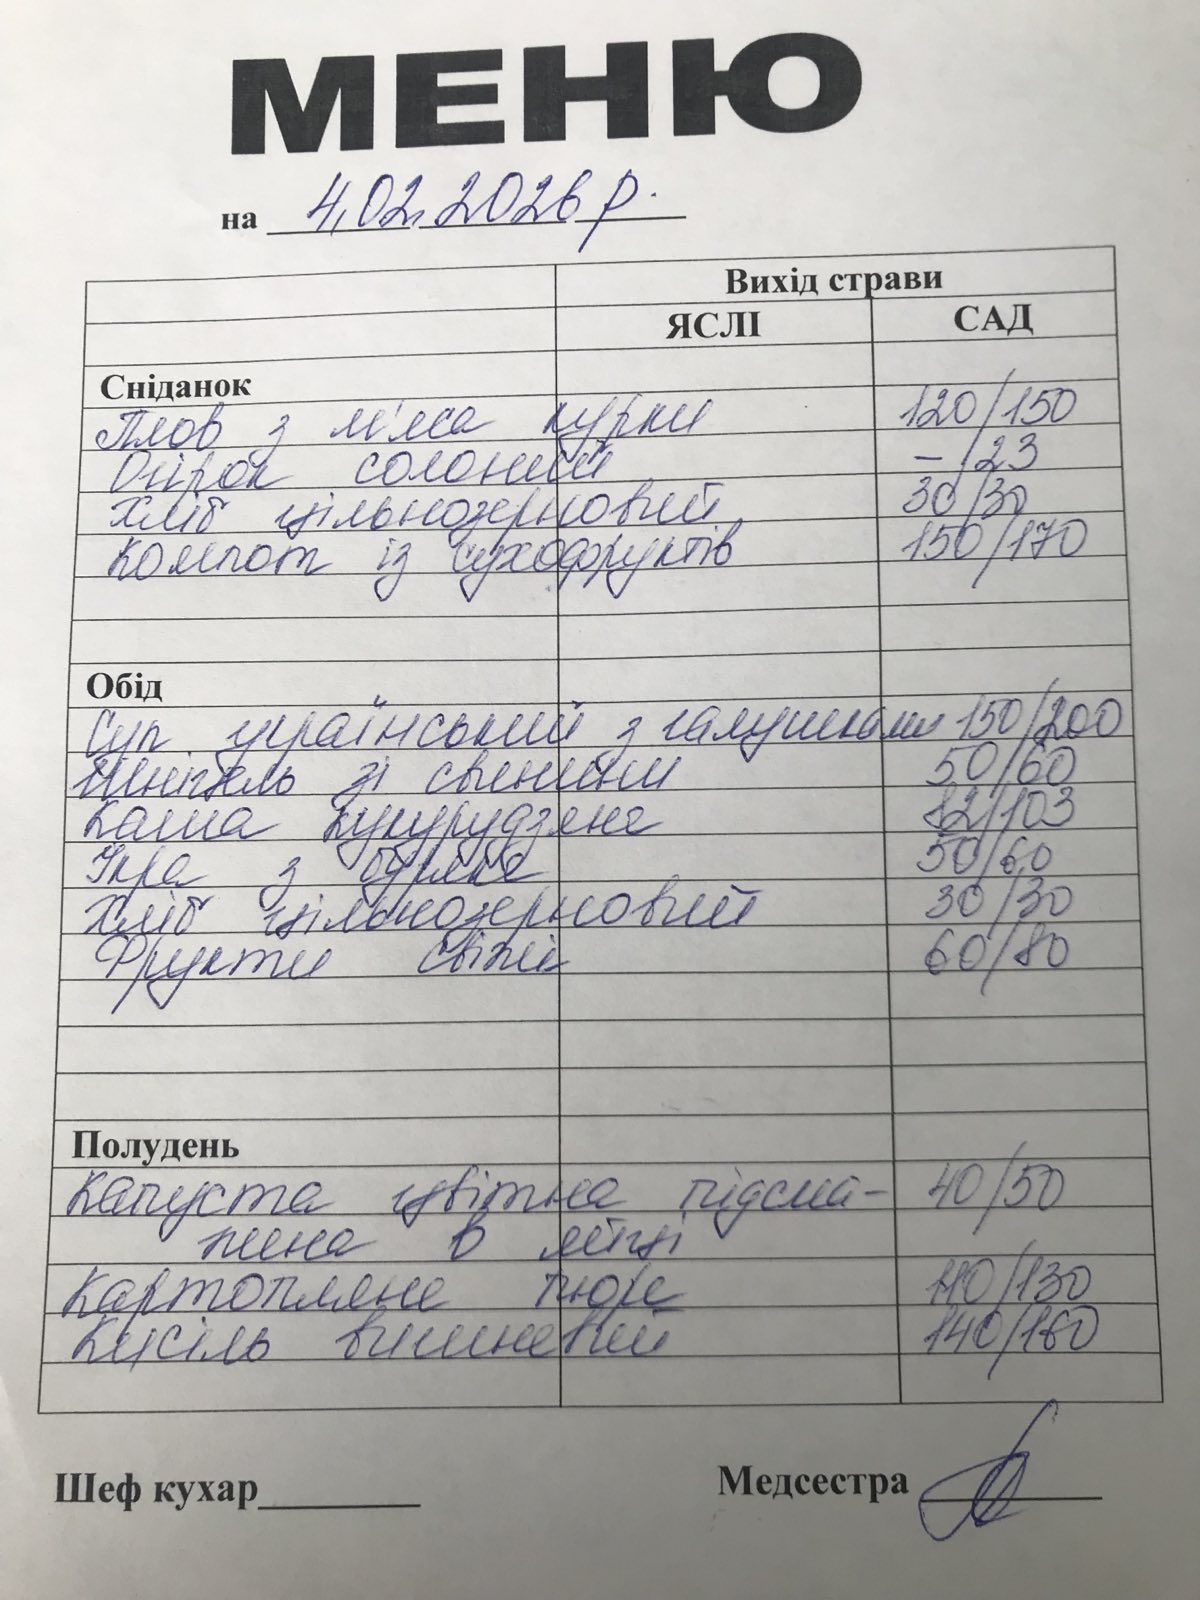 МЕНЮ
на 4.02.2026 р.
Вихід страви
ЯСЛІ САД
Сніданок
Плов з м'яса курки 120/150
Огірок солоний -/23
Хліб цільнозерновий 30/30
Компот із сухофруктів 150/170
Обід
Суп український з галушками 150/200
Шніцель зі свинини 50/60
Каша кукурудзяна 82/103
Ікра з буряка 50/60
Хліб цільнозерновий 30/30
Фрукти свіжі 60/80
Полудень
Капуста цвітна підсма- 40/50
жена в яйці
Картопляне пюре 110/130
Кисіль вишневий 140/160
Шеф кухар Медсестра